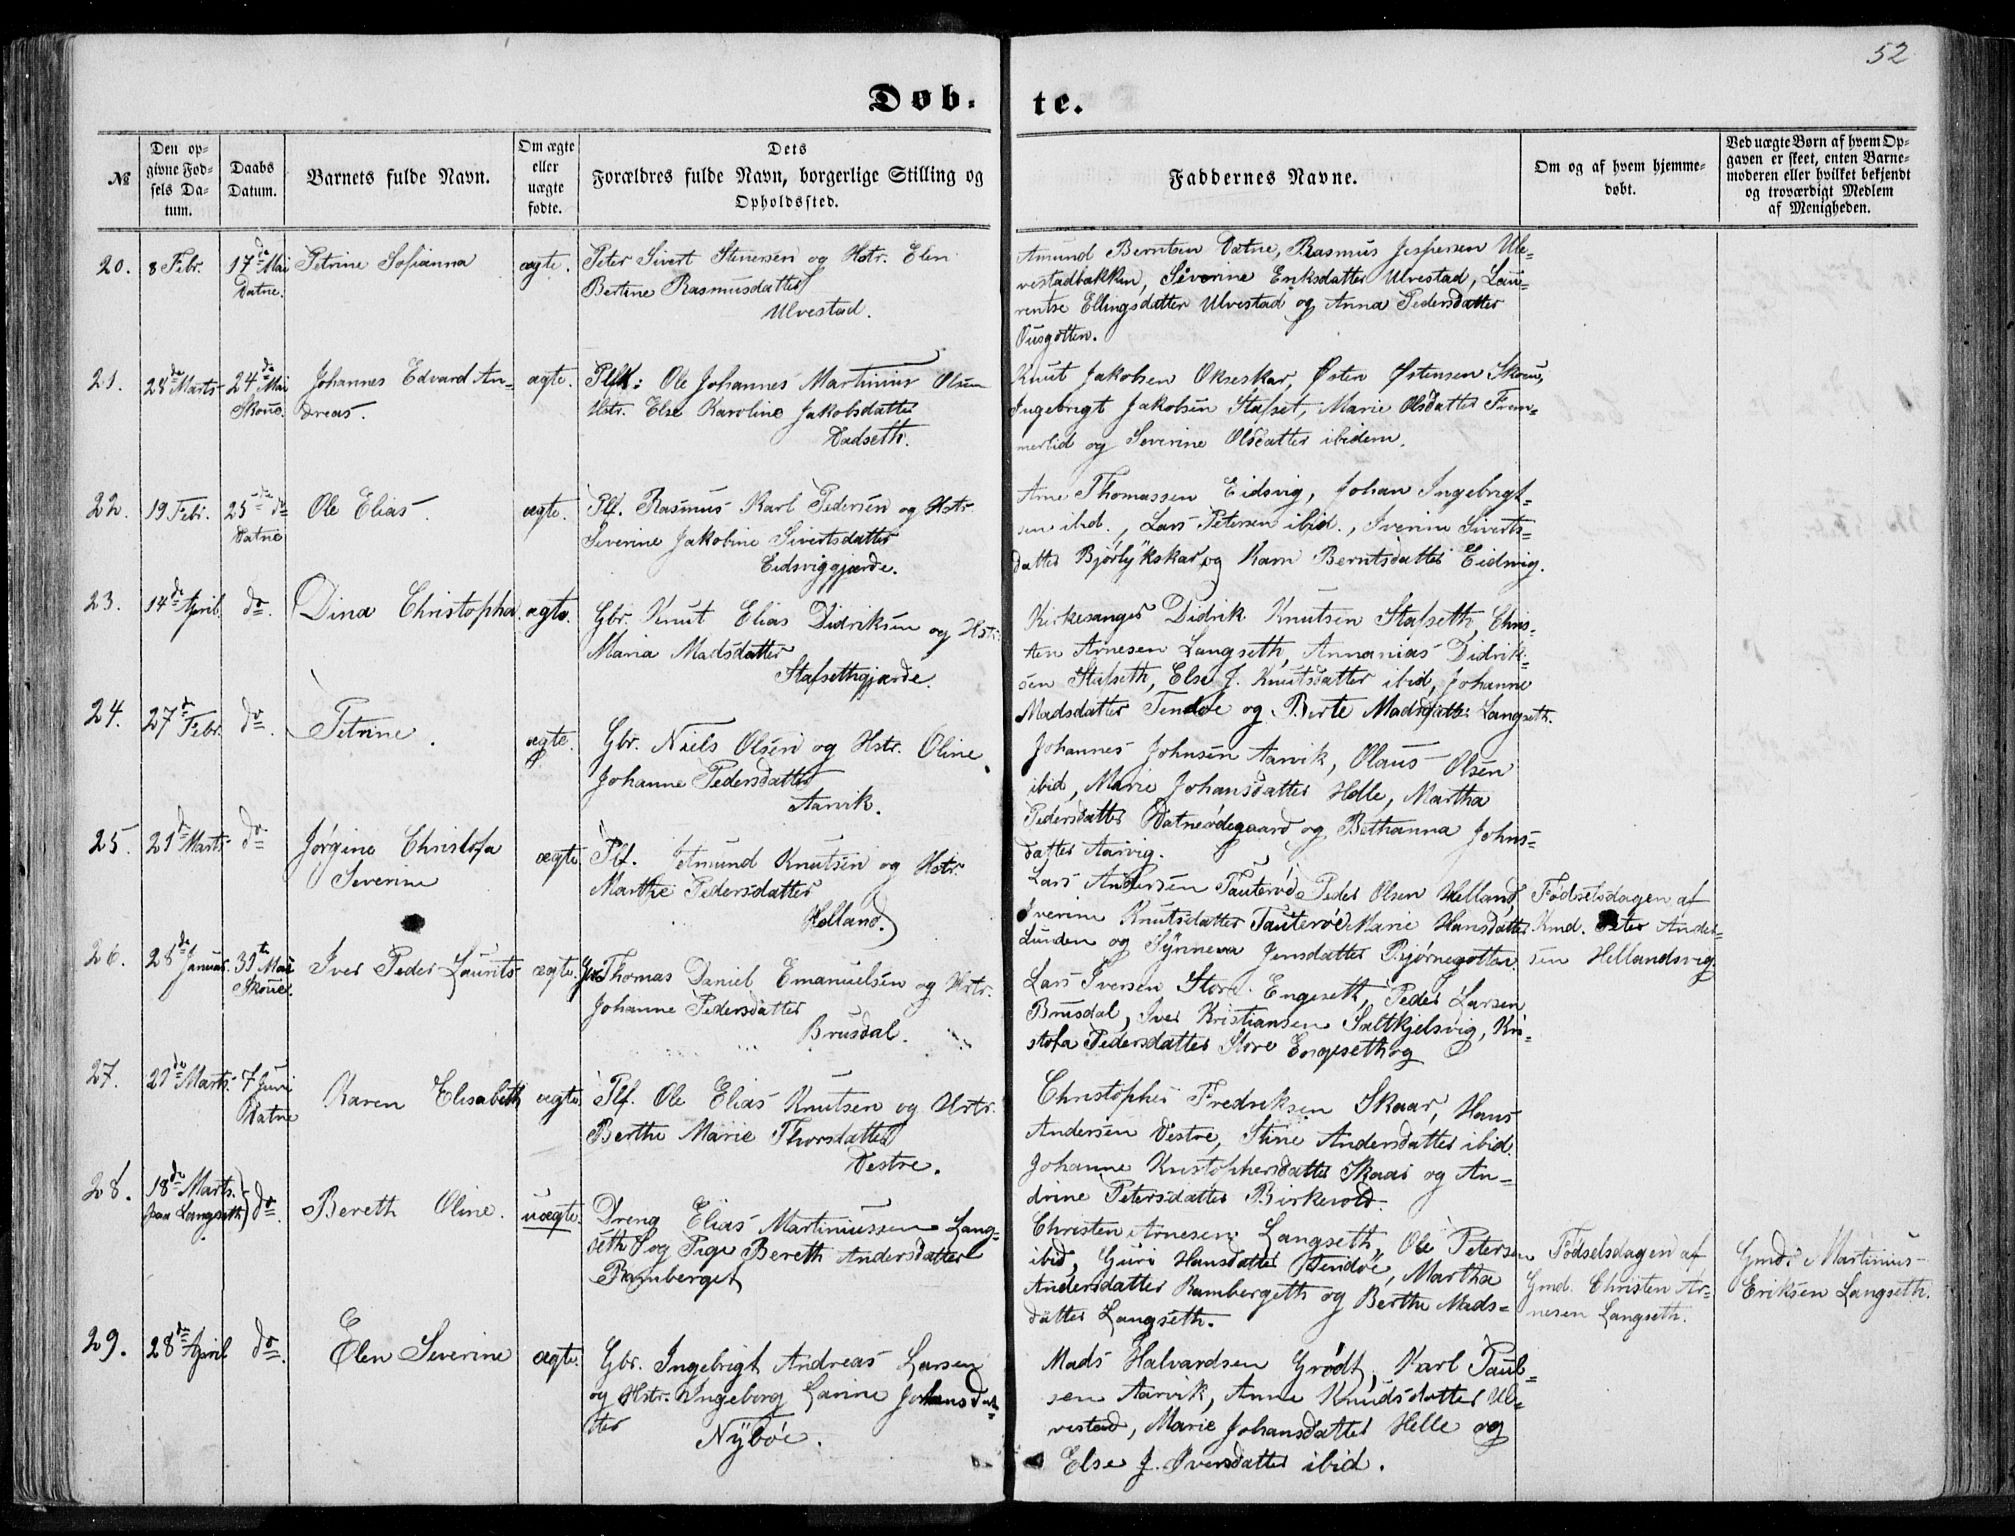 52
Døb-
te.
№
Den op-
givne Fød-
sels Da-
tum.
Daabs
Datum.
Barnets fulde Navn.
Om ægte
eller
uægte
fødte.
Dets
Forældres fulde Navn, borgerlige Stilling og
Opholdssted.
Faddernes Navne.
Om og af hvem hjemme-
døbt.
Ved uægte Børn af hvem Op-
gaven er skeet, enten Barne-
moderen eller hvilket bekjendt
og troværdigt Medlem
af Menigheden.
20.
8 Febr.
17de Mai
Vatne.
Petrine Sofianna
ægte.
Peter Sivert Stenersen og Hstr. Elen
Bertine Rasmusdatter
Ulvestad.
Amund Berntsen Vatne, Rasmus Jespersen Ule-
vestadbakken, Siverine Eriksdatter Ulvestad, Lau-
rentse Ellingsdatter Ulvestad og Anna Pedersdatter
Ousgotten.
21.
28de Marts
24de Mai
Skoue.
Johannes Edvard An-
dreas.
ægte.
Ole Johannes Martinius Olsen
Hstr. Else Karoline Jakobsdatter
Vadseth.
Knut Jakobsen Okseskar, Østen Østensen Skoue,
Ingebrigt Jakobsen Stafset, Marie Olsdatter Frem-
merlid og Severine Olsdatter ibidem.
22.
19 Febr.
25de do
Vatne
Ole Elias.
ægte.
Plf. Rasmus Karl Pedersen og Hstr.
Severine Jakobine Sivertsdatter
Eidsviggjærde.
Arne Thomassen Eidsvig, Johan Ingebrigt-
sen ibid., Lars Petersen ibid., Iverine Siverts-
datter Bjørlykskar og Karn Berntsdatter Eidsvig.
23.
14de April
do.
Dina Christopha.
ægte.
Gbr. Knut Elias Didriksen og Hstr.
Maria Madsdatter
Stafsethgjærde.
Kirkesanger Didrik Knutsen Stafseth, Chris-
ten Arnesen Langseth, Annanias Didrik-
sen Stafseth, Else J. Knutsdatter ibid, Johanne
Madsdatter Tendøe og Berte Madsdatter Langseth.
24.
27de Febr.
do.
Petrine.
ægte.
Gbr. Niels Olsen og Hstr. Oline
Johanne Pedersdatter
Aarvik.
Johannes Johnsen Aarvik, Olaus Olsen
ibid, Marie Johansdatter Helle, Martha
Pedersdatter Vatneødegaard og Bethanna Johns-
datter Aarvig.
25.
21de Marts
do
Jørgine Christofa
Severine
ægte.
Plf. Ietmund Knutsen og Hstr.
Marthe Pedersdatter
Helland.
Lars Andersen Tauterøe, Peder Olsen Helland,
Iverine Knutsdatter Tauterøe, Marie Hansdatter
Lunden og Synneva Jensdatter Bjørnegotten.
Fødselsdagen af
Kmd. Peter Ander-
sen Hellandsvig
26.
28de Januar.
31te Mai
Skoue.
Iver Peder Laurits
ægte.
Thomas Daniel Emanuelsen og Hstr.
Johanne Pedersdatter
Brusdal.
Lars Iversen Store Engeseth, Peder Larsen
Brusdal, Iver Kristiansen Saltkjelsvig, Kri-
stofa Pedersdatter Store Engeseth og
27.
21de Marts.
7 Juni
Vatne
Karen Elisabeth
ægte.
Plf. Ole Elias Knutsen og Hstr.
Berthe Marie Thorsdatter
Vestre.
Christopher Fredriksen Skaar, Hans
Andersen Vestre, Stine Andersdatter ibid.
Johanne Kristophersdatter Skaar og An-
drine Petersdatter Birkevold.
28.
18de Marts.
paa Langseth)
do.
Bereth Oline.
uægte.
Dreng Elias Martiniussen Lang-
seth og Pige Bereth Andersdatter
Ramberget
Christen Arnesen Langseth, Ole Petersen
ibid, Guri Hansdatter Tendøe, Martha
Andersdatter Rambergeth og Berthe Mads-
datter Langseth.
Fødselsdagen af
Gmd. Christen Ar-
nesen Langseth.
Gmd. Martinius
Eriksen Langseth.
29.
28de April
do.
Elen Severine
ægte.
Gbr. Ingebrigt Andreas Larsen
og Hstr. Ingeborg Larine Johansdat-
ter
Nybøe.
Mads Halvardsen Grødt, Karl Paul-
sen Aarvik, Anne Knudsdatter Ul-
vestad, Marie Johansdatter Helle og
Else J. Iversdatter ibid.